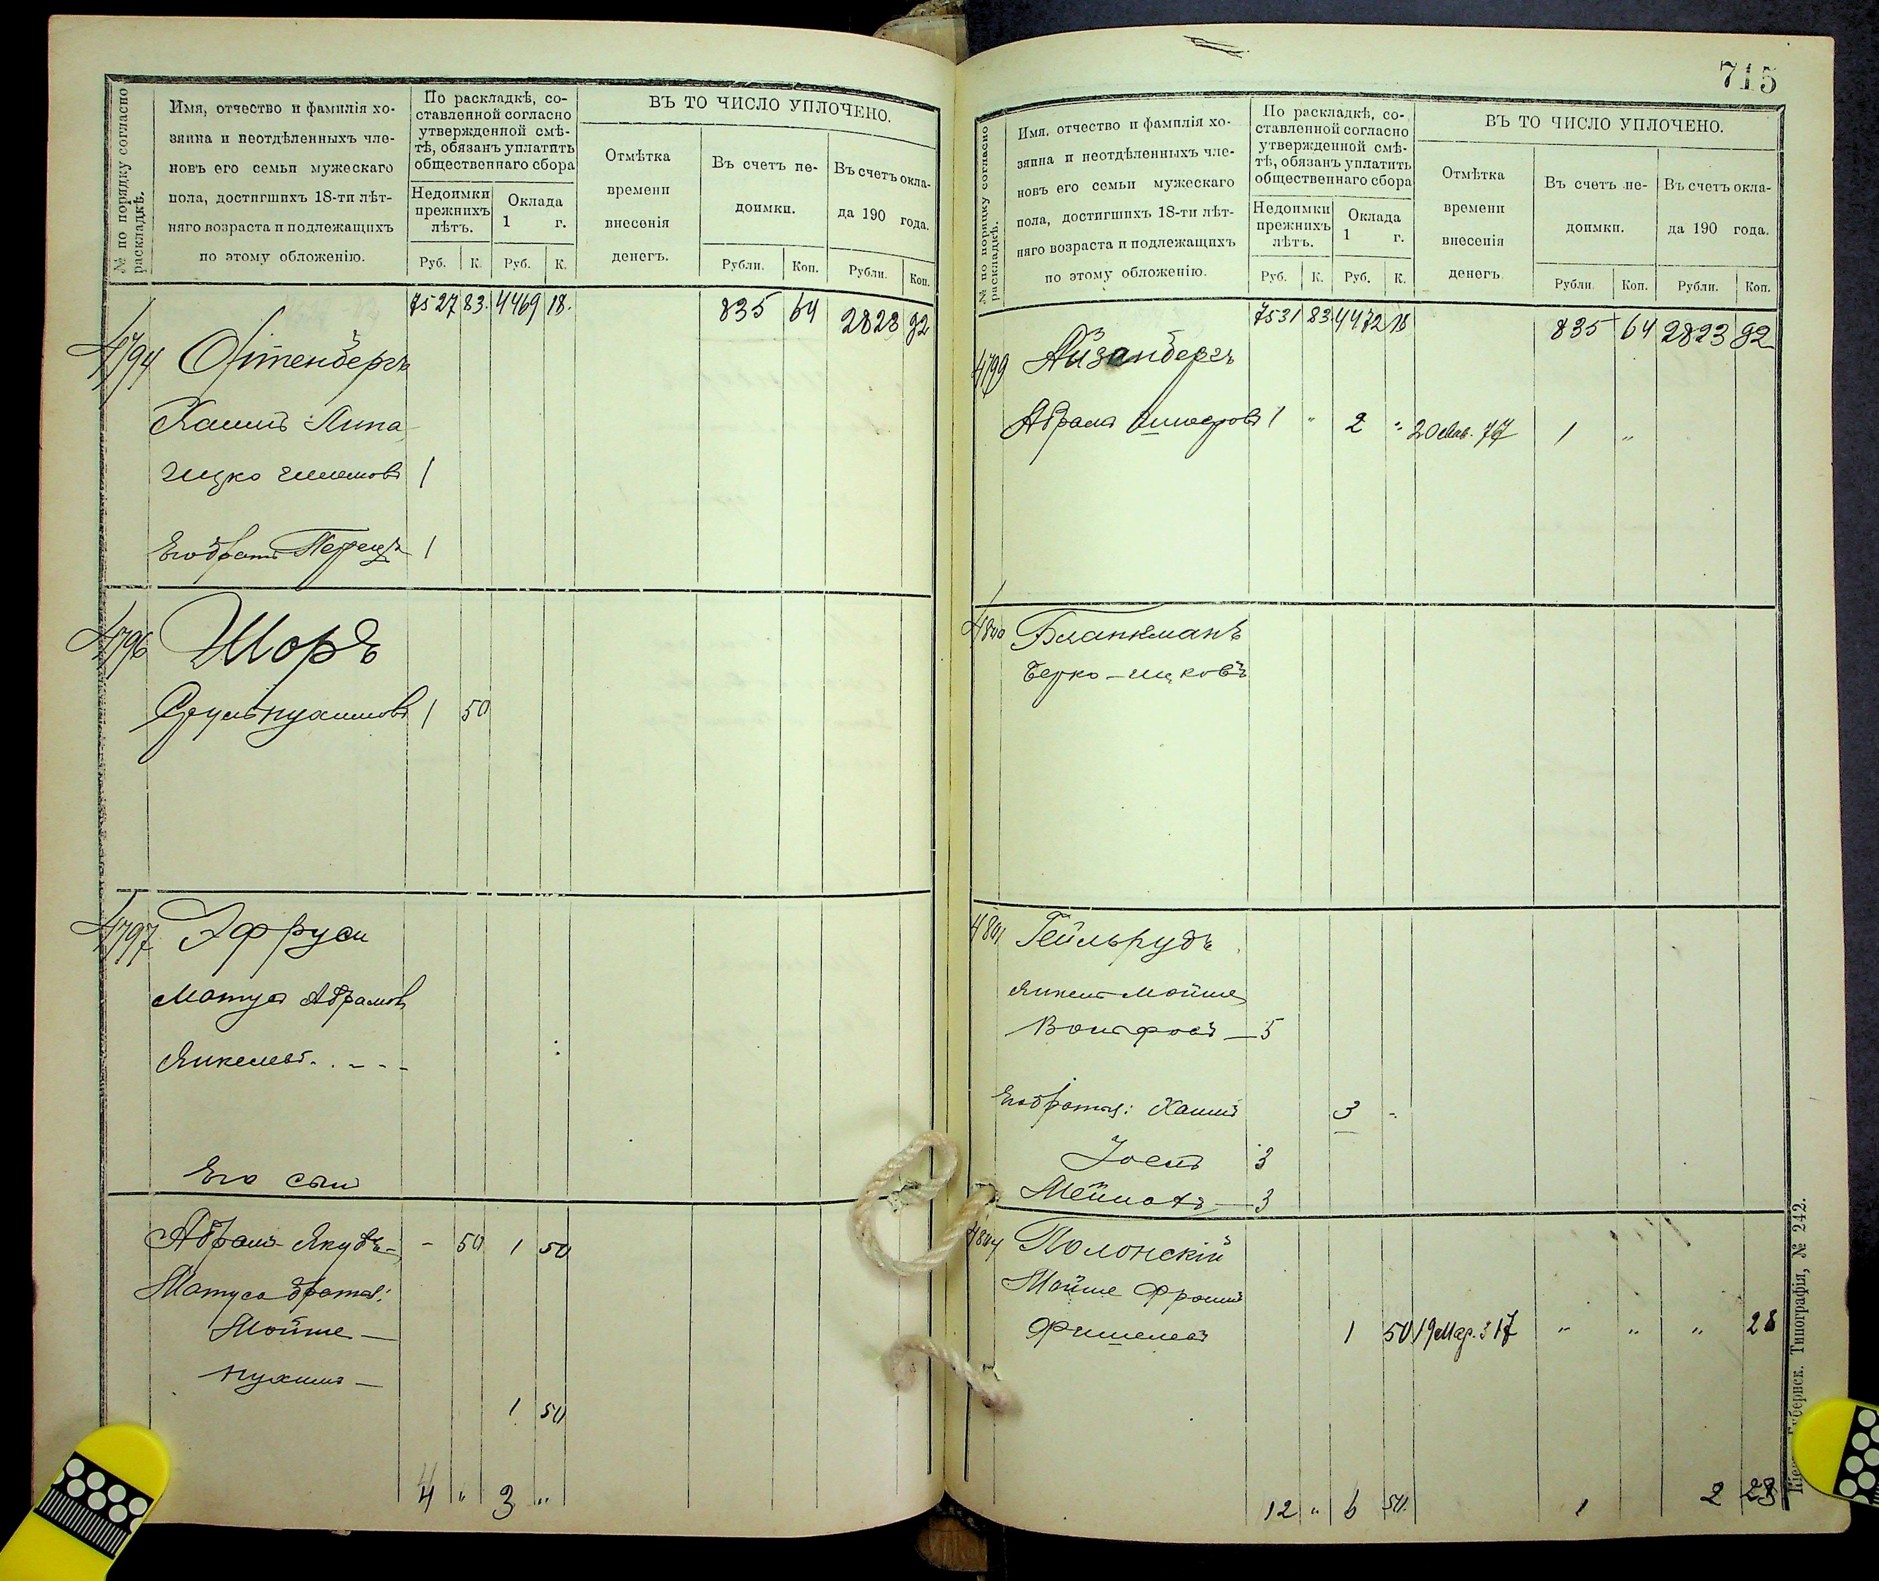 № по порядку согласно раскладкѣ.
Имя, отчество и фамилія хо-
зяина и неотдѣленныхъ чле-
новъ его семьи мужескаго
пола, достигшихъ 18-ти лѣт-
няго возраста и подлежащихъ
по этому обложенію.
По раскладкѣ, со-
ставленной согласно
утвержденной смѣ-
тѣ, обязанъ уплатить
общественнаго сбора
Недоимки
прежнихъ
лѣтъ.
Оклада
1 г.
Руб. К. Руб. К.
ВЪ ТО ЧИСЛО УПЛОЧЕНО.
Отмѣтка
времени
внесенія
денегъ.
Въ счетъ не-
доимки.
Въ счетъ окла-
да 190 года.
Рубли. Коп. Рубли. Коп.
7527 83. 4469 18. 835 64 2823 92
4794
Хаимъ Липа
Ицко 1
Его братъ Перецъ 1
4796 Шоръ
Сруль Нухимовъ 1 50
4797 Эфруси
Матус Абрамовъ
Янкелевъ
Его сын
Абрамъ Якубъ - 50 1 50
Матуса братья:
Мойше —
Нухимъ —
1 50
4 " 3 "
715
№ по порядку согласно раскладкѣ.
Имя, отчество и фамилія хо-
зяина и неотдѣленныхъ чле-
новъ его семьи мужескаго
пола, достигшихъ 18-ти лѣт-
няго возраста и подлежащихъ
по этому обложенію.
По раскладкѣ, со-
ставленной согласно
утвержденной смѣ-
тѣ, обязанъ уплатить
общественнаго сбора
Недоимки
прежнихъ
лѣтъ.
Оклада
1 г.
Руб. К. Руб. К.
ВЪ ТО ЧИСЛО УПЛОЧЕНО.
Отмѣтка
времени
внесенія
денегъ.
Въ счетъ не-
доимки.
Въ счетъ окла-
да 190 года.
Рубли. Коп. Рубли. Коп.
7531 83 4472 18 835 64 2823 92
4799 Айзанбергъ
Абрамъ 1 " 2 " 1 "
4800 Бланкманъ
Берко-Ицковъ
4801 Гейльрудъ
Янкель Мойше
Вольфовъ — 5
Его братья: Хаимъ 3 -
Іосль 3
— 3
4804 Полонскій
Мойше Фроим
Фишелевъ 1 50 19 Мар. 317 " " " 28
12 " 6 50 1 2 28
Типографія, № 242.